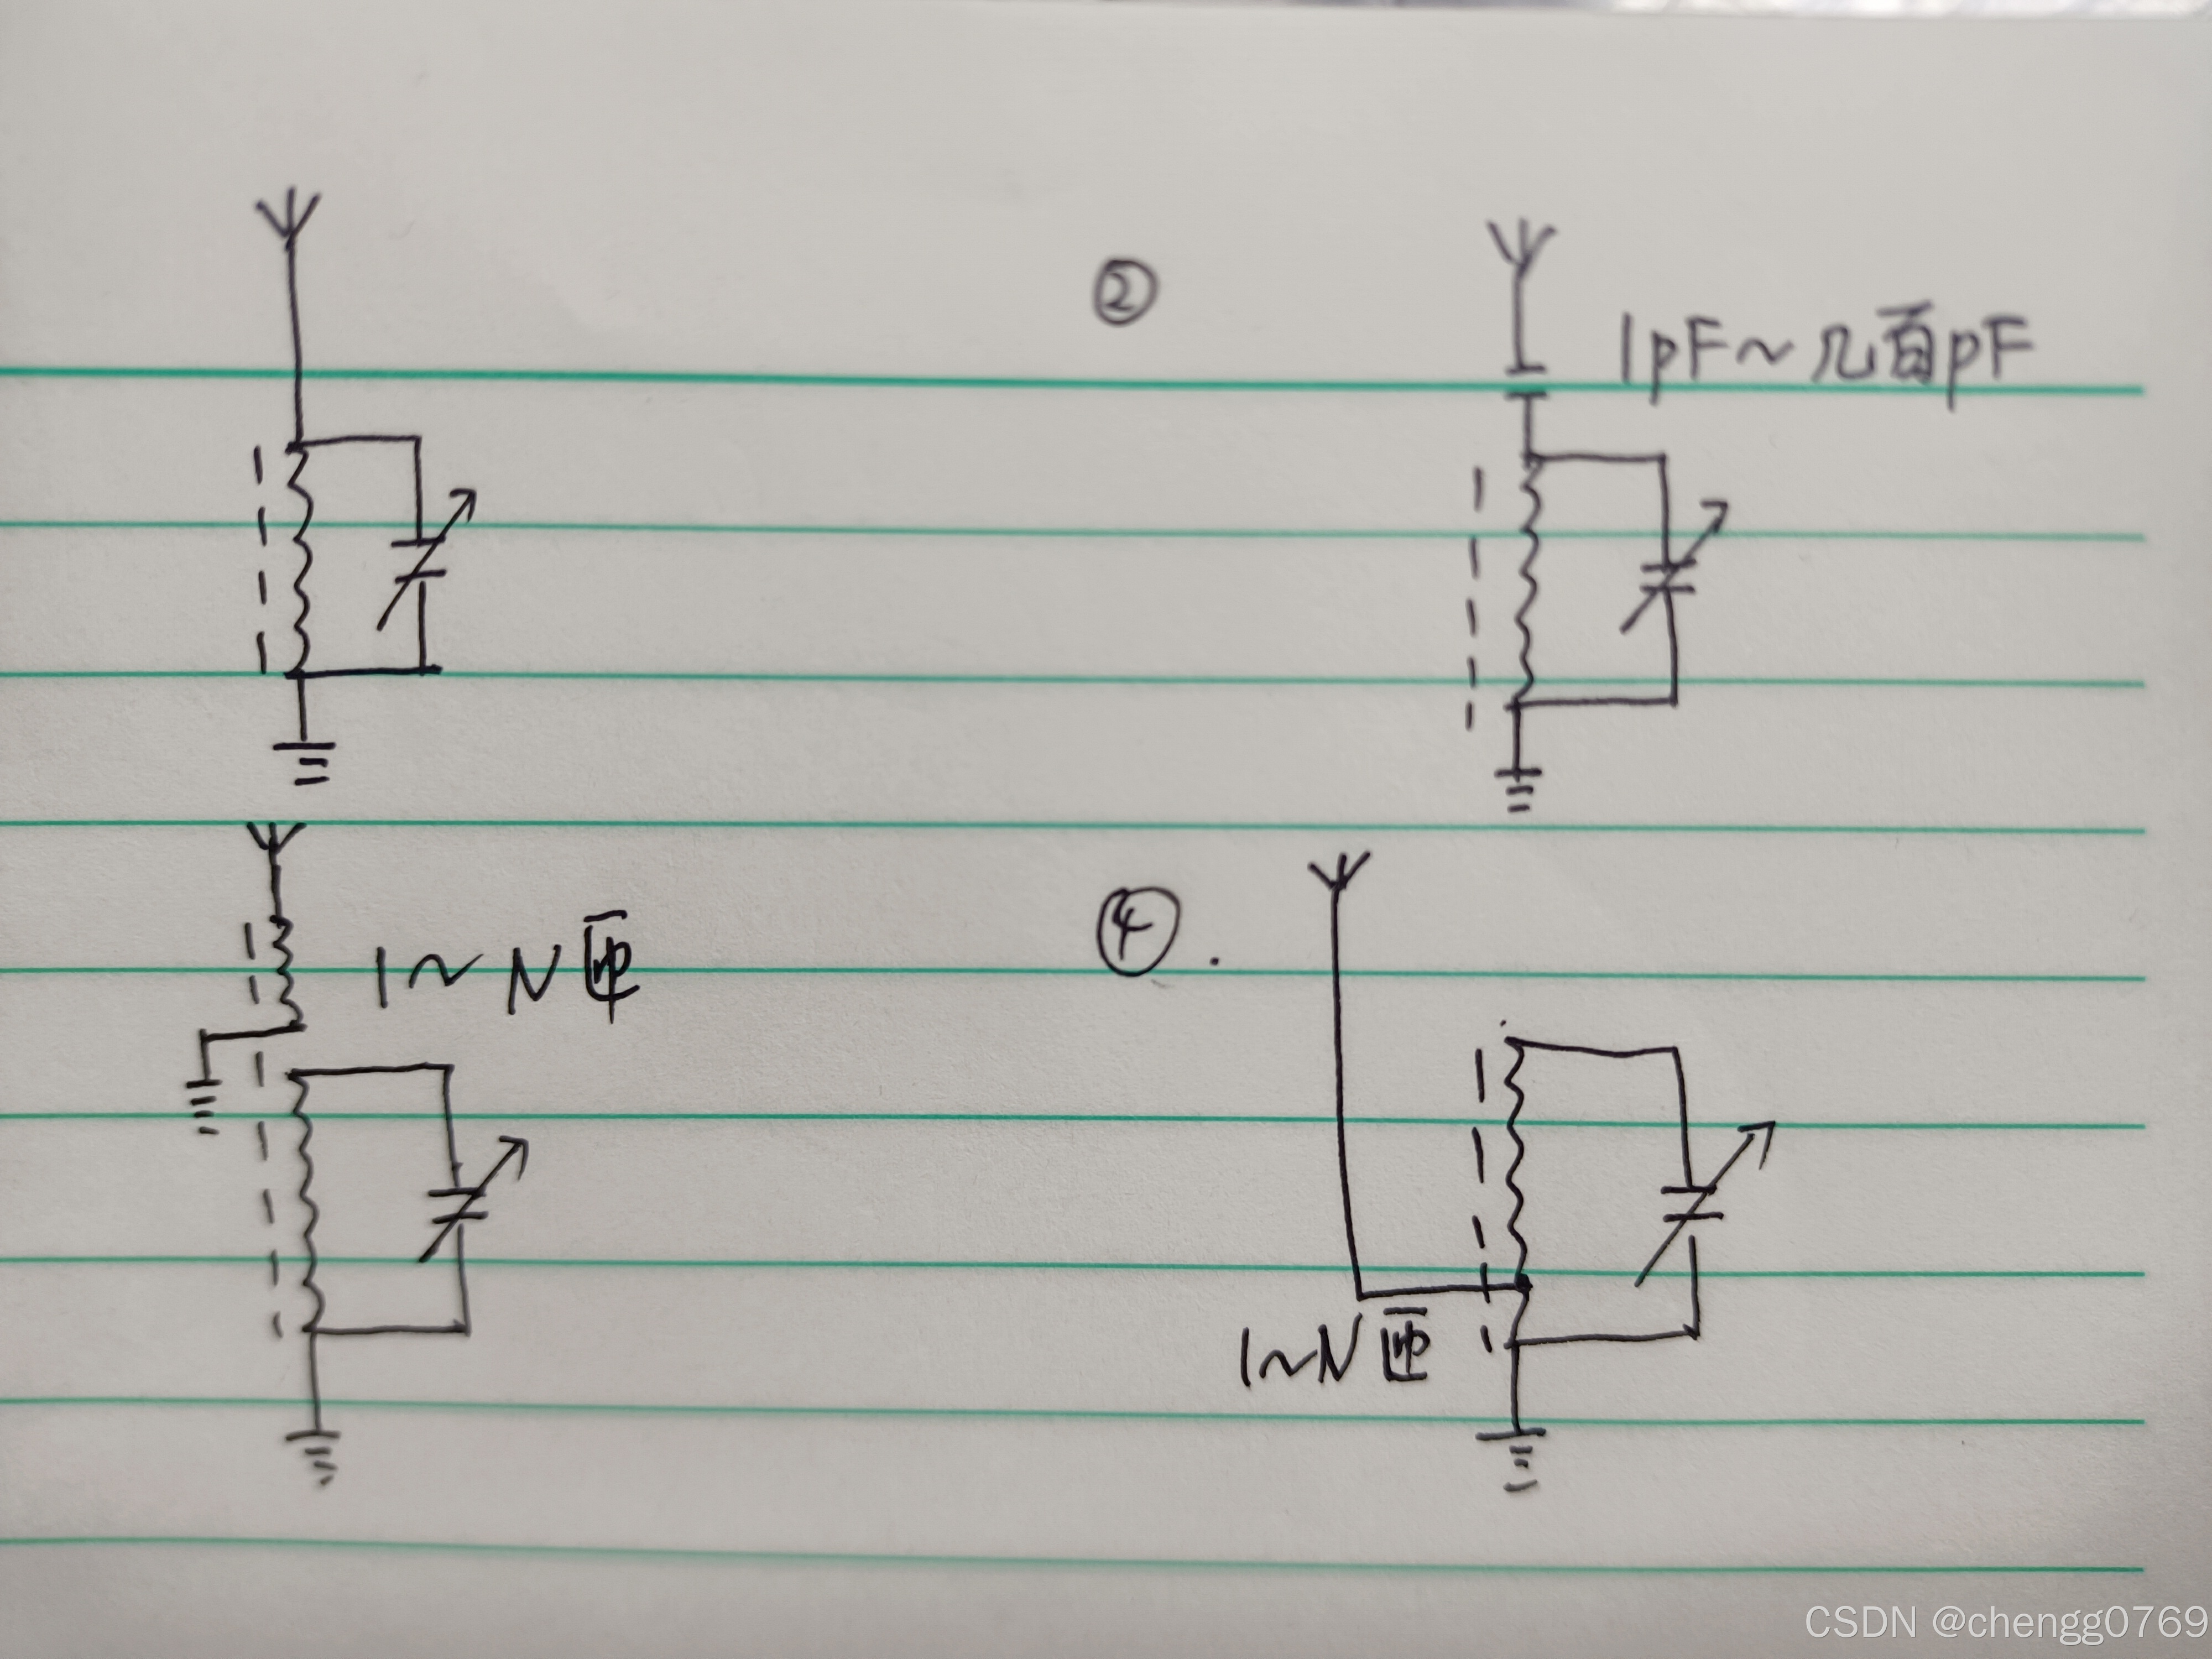 ②
1pF~几百pF
1~N匝
④.
1~N匝
CSDN @chengg0769